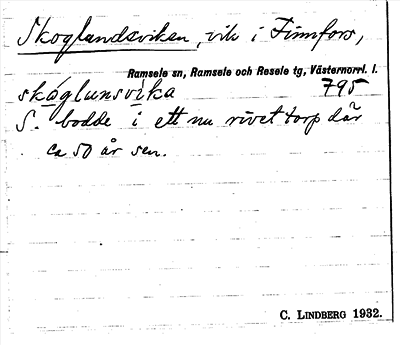 Skoglandsviken, vik i Finnfors,
Ramsele sn, Ramsele och Resele tg, Västernorrl. l.
795
skóglunsvika
S. bodde i ett nu rivet torp där
ca 50 år sen.
C. LINDBERG 1932.